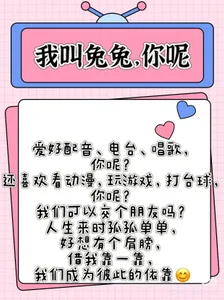 我叫兔兔,你呢
爱好配音、电台、唱歌,
你呢?
还喜欢看动漫,玩游戏,打台球,
你呢?
我们可以交个朋友吗?
人生来时孤孤单单,
好想有个肩膀,
借我靠一靠,
我们成为彼此的依靠😊